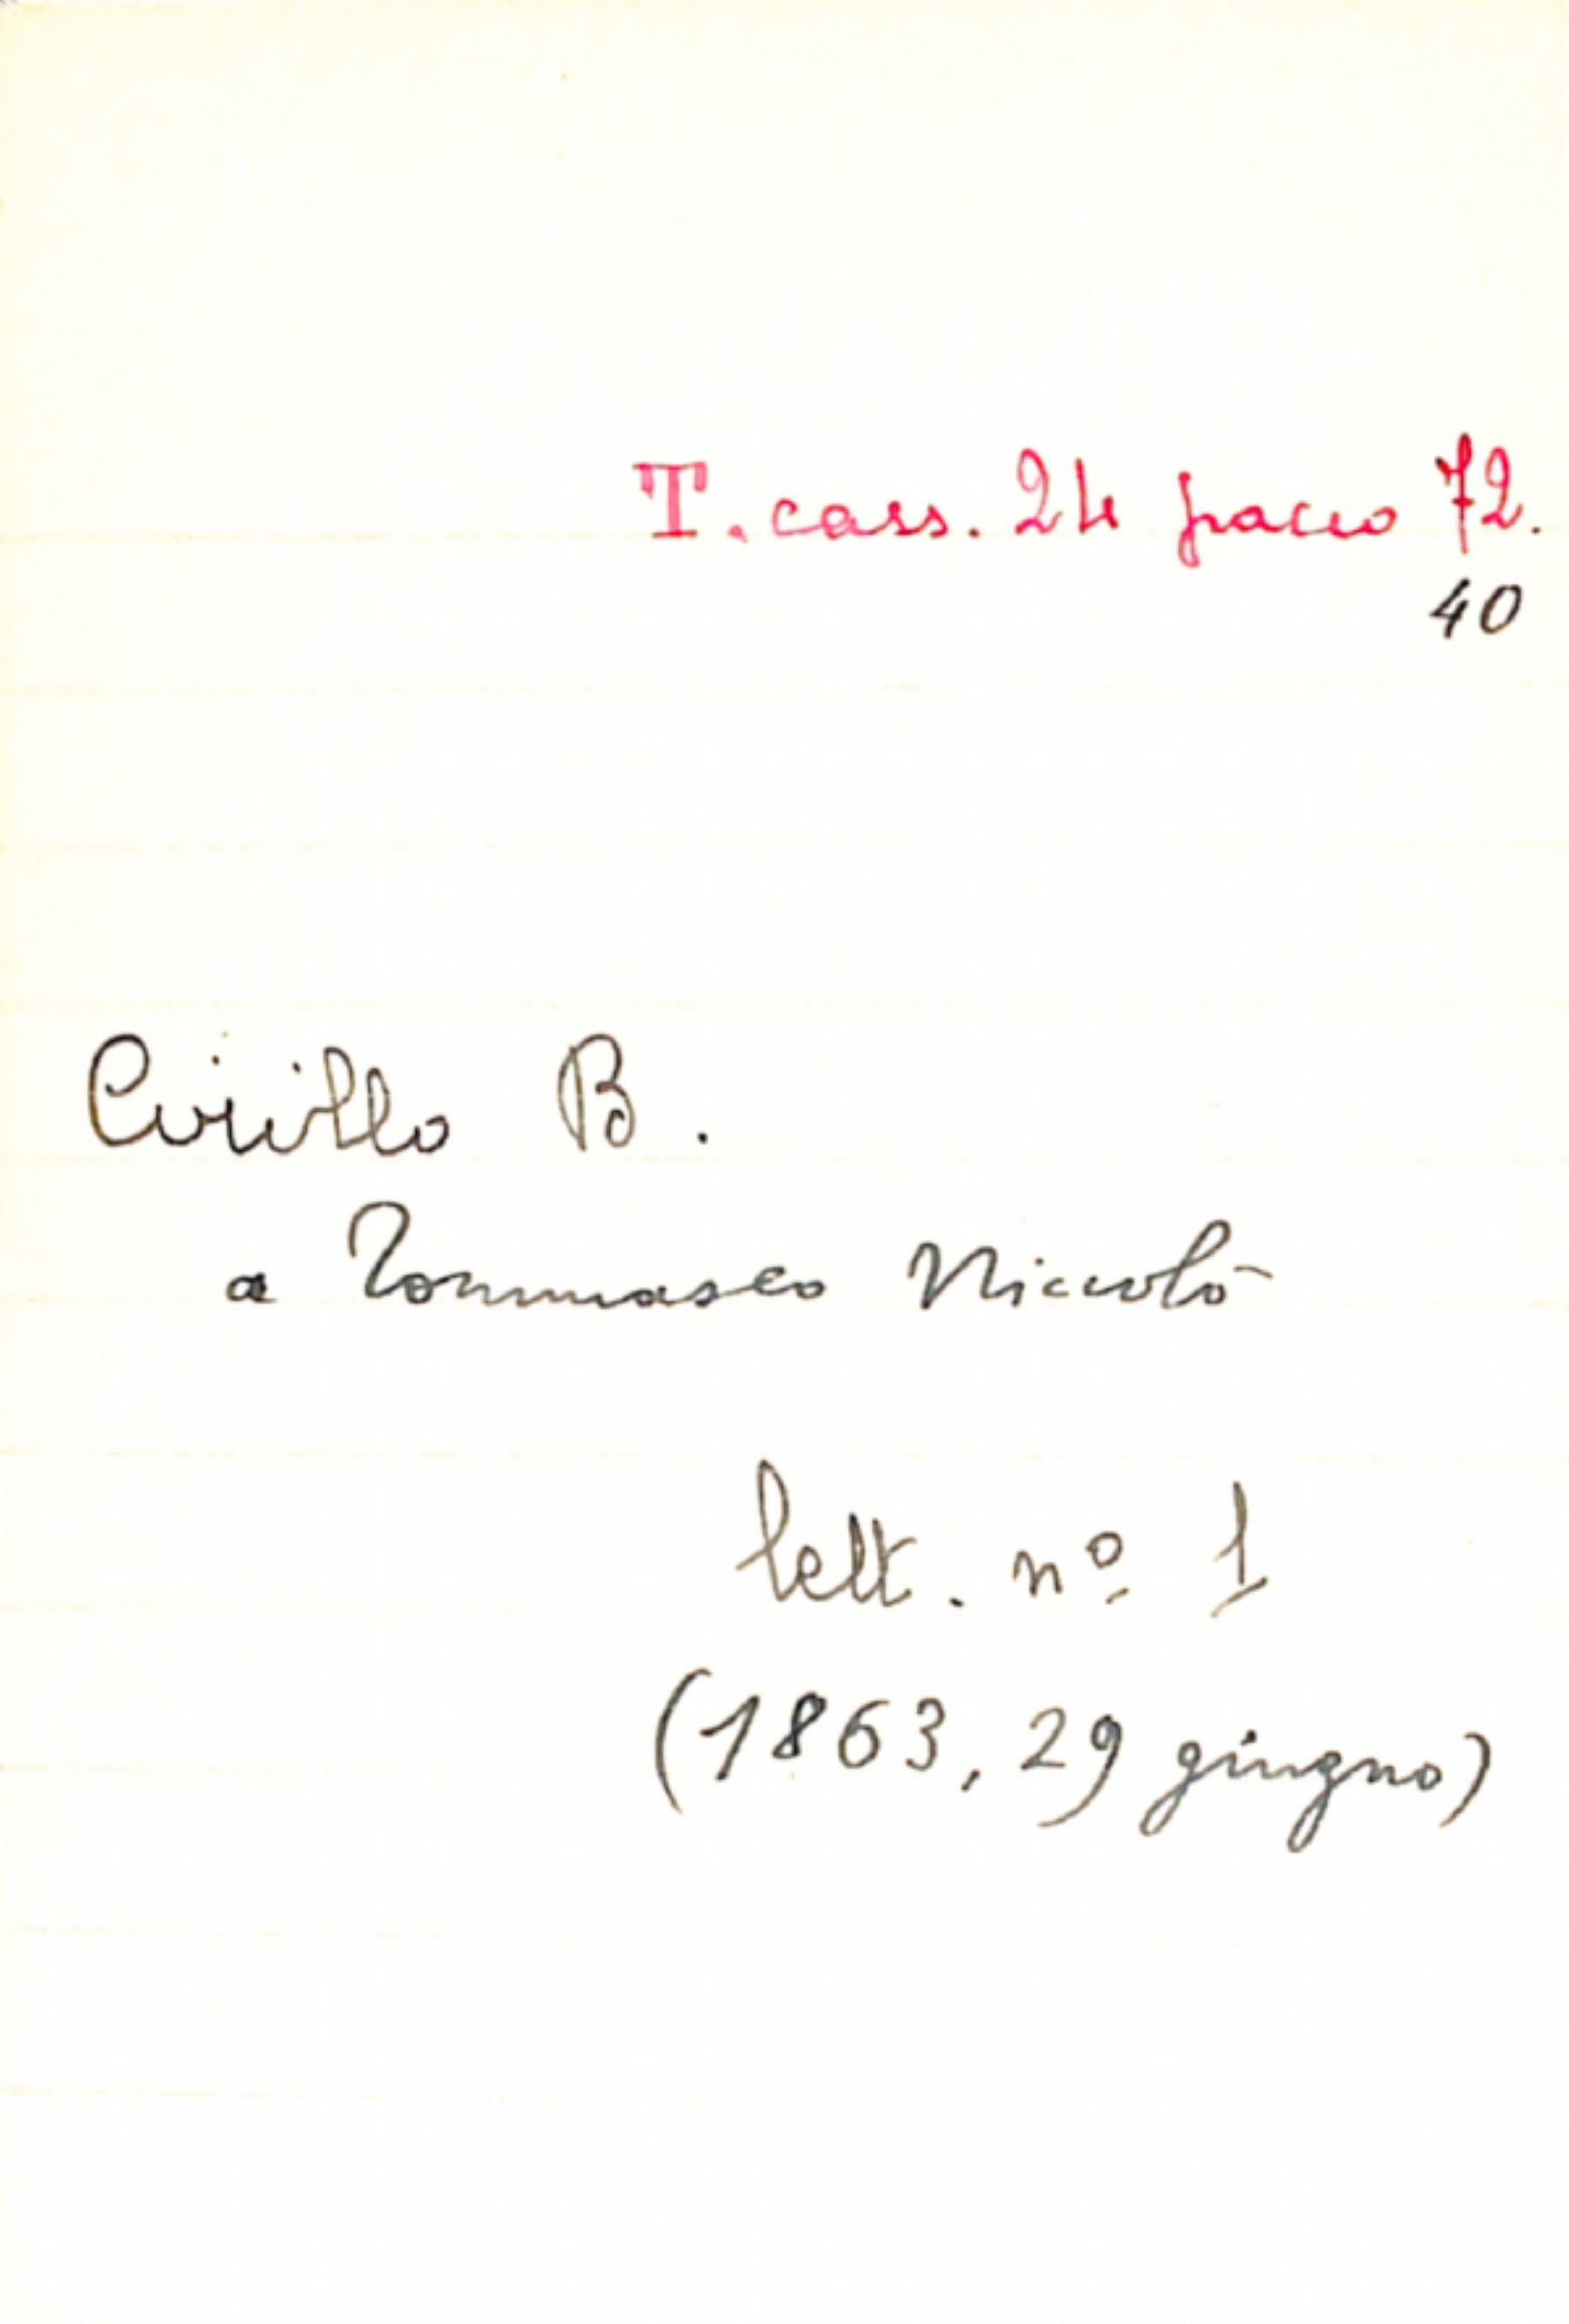 T. cass. 24 pacco 72.
40
Cirillo B.
a Tommaseo Niccolò
lett. nº 1
(1863, 29 giugno)